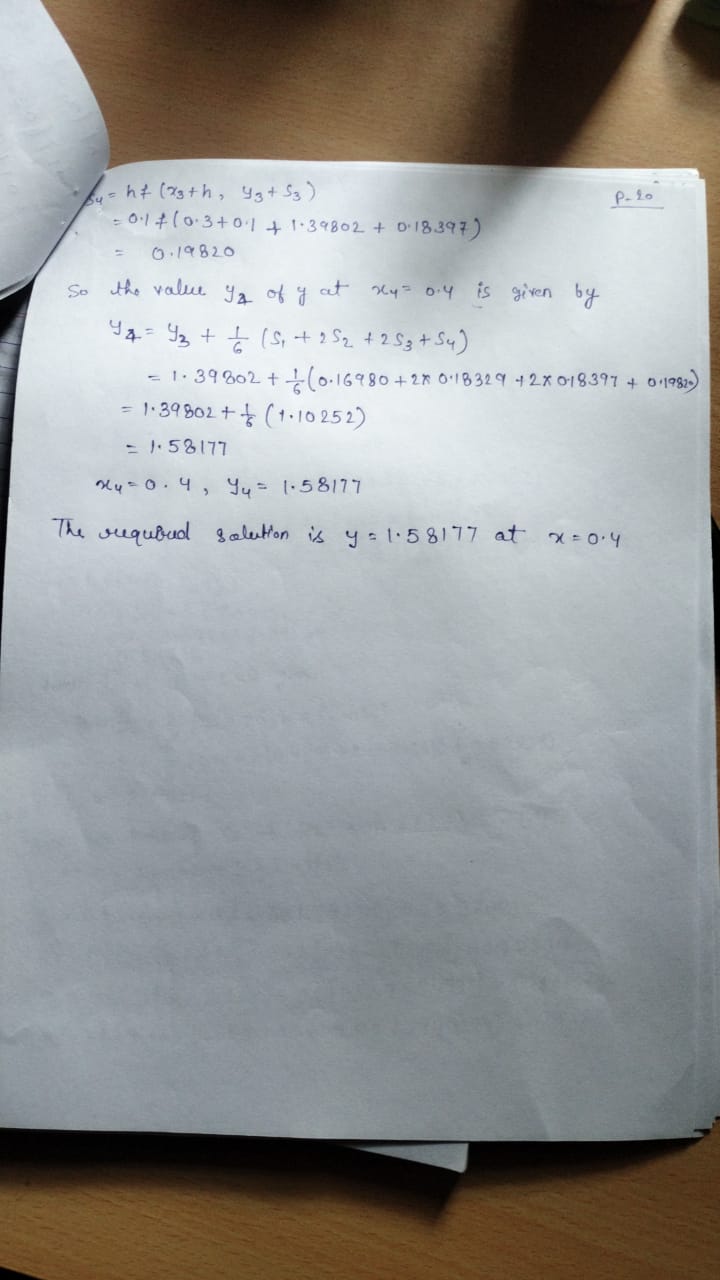 P-20
S4 = hf (x3+h, y3+S3)
= 0.1 f (0.3+0.1 + 1.39802 + 0.18397)
= 0.19820
So the value y4 of y at x4 = 0.4 is given by
y4 = y3 + 1/6 (S1 + 2S2 + 2S3 + S4)
= 1.39802 + 1/6 (0.16980 + 2×0.18329 + 2×018397 + 0.19820)
= 1.39802 + 1/6 (1.10252)
= 1.58177
x4 = 0.4, y4 = 1.58177
The required solution is y = 1.58177 at x = 0.4